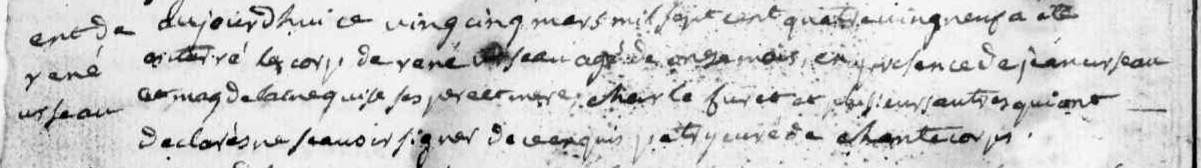 ent de
rené
usseau
aujourdhui ce vingcinq mars mil sept cent quatrevingneuf a ete
enterré le corp de rené usseau agé de onze mois, en presence de jean usseau
et magdelaine quise ses pere et mere, charle furet et plusieurs autres qui ont
declarés ne scavoir signer de ce enquis petry curé de chantecorps.